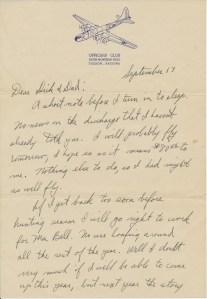 OFFICERS' CLUB
DAVIS-MONTHAN FIELD
TUCSON, ARIZONA
September 17
Dear & Dad:
A short note before I turn in to sleep.
No news on the discharge that I haven't
already told you. I will probably fly
tomorrow, I hope so as it means to
me. Nothing else to do, so I had might
as well fly.
If I get back too soon before
hunting season I will go right to work
for Ma Bell. No use loafing around
all the rest of the year. Well I doubt
very much if I will be able to come
up this year, but next year the story